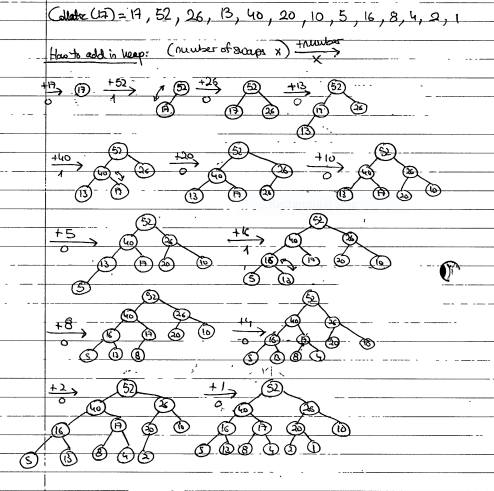 Collatz(17) = 17, 52, 26, 13, 40, 20, 10, 5, 16, 8, 4, 2, 1
How to add in heap: (number of swaps x) +number x
+17 0 17 +52 1 52 17 +26 0 52 17 26 +13 0 52 17 26 13
+40 1 52 40 26 13 17 +20 0 52 40 26 13 17 20 +10 0 52 40 26 13 17 20 10
+5 0 52 40 26 13 17 20 10 5 +16 1 52 40 26 16 17 20 10 5 13
+8 0 52 40 26 16 17 20 10 5 13 8 +4 0 52 40 26 16 17 20 10 5 13 8 4
+2 0 52 40 26 16 17 20 10 5 13 8 4 2 +1 0 52 40 26 16 17 20 10 5 13 8 4 2 1